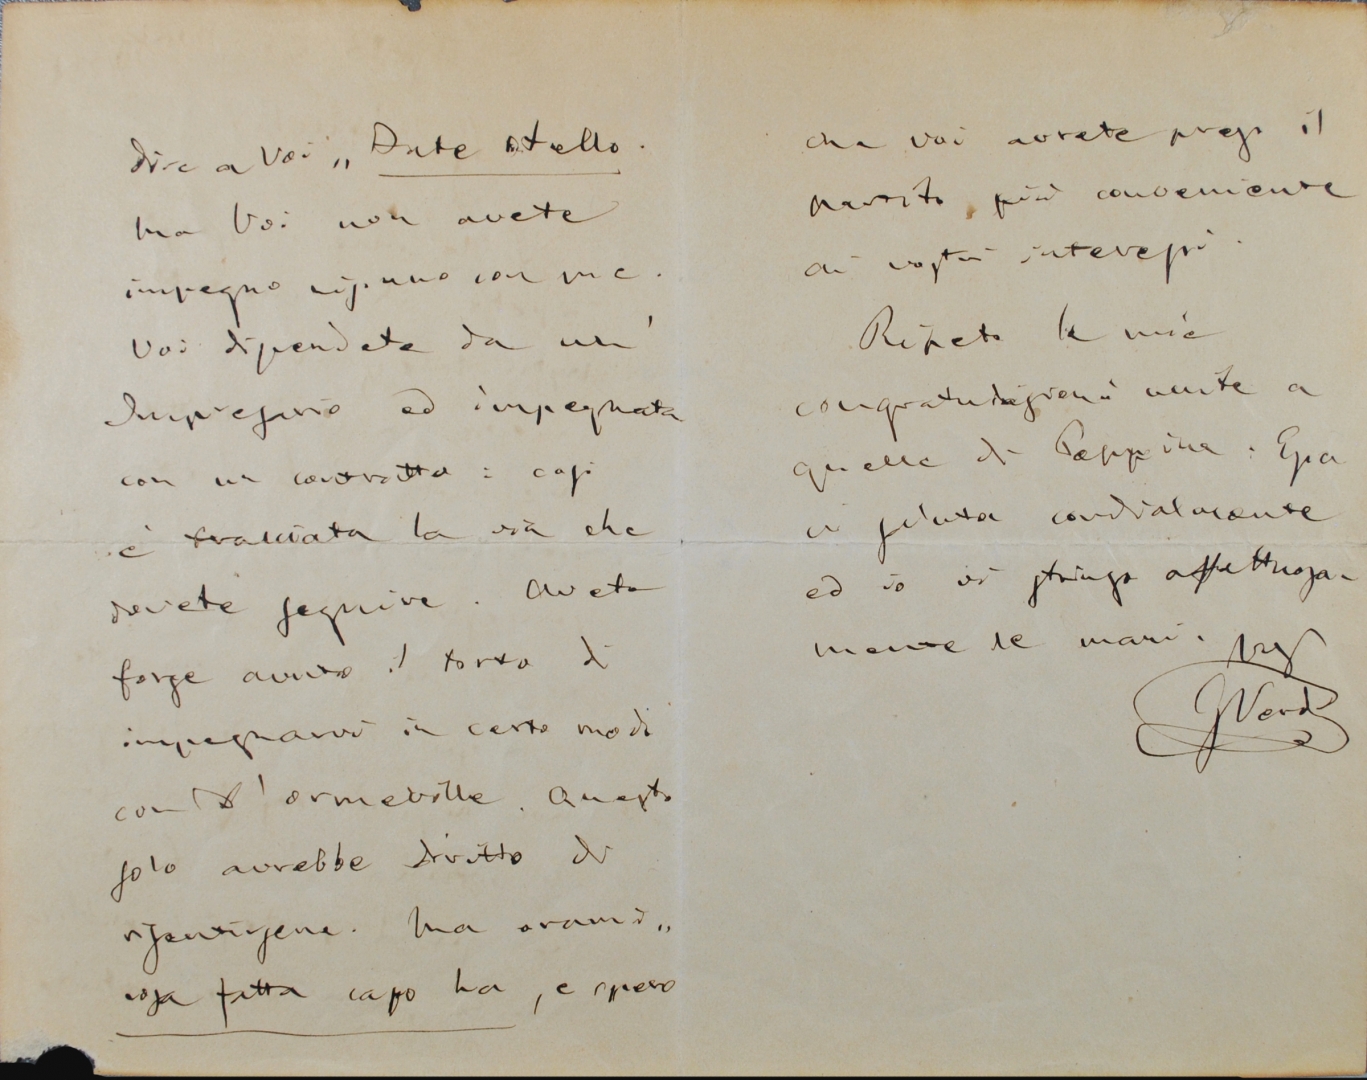 dire a Voi „ Date Otello.
Ma Voi non avete
impegno nissuno con me.
Voi dipendete da un'
Impresario ed impegnata
con un contratto: così
è tracciata la via che
dovete seguire. Avete
forse avuto il torto di
impegnarvi in certo modo
con D'Ormeville. Questo
solo avrebbe diritto di
risentirsene. Ma oramai „
cosa fatta capo ha, e spero
che voi avrete preso il
partito più conveniente
ai vostri interessi.
Ripeto le mie
congratulazioni unite a
quelle di Peppina: Essa
vi saluta cordialmente
ed io vi stringo affettuosa-
mente le mani.
G Verdi